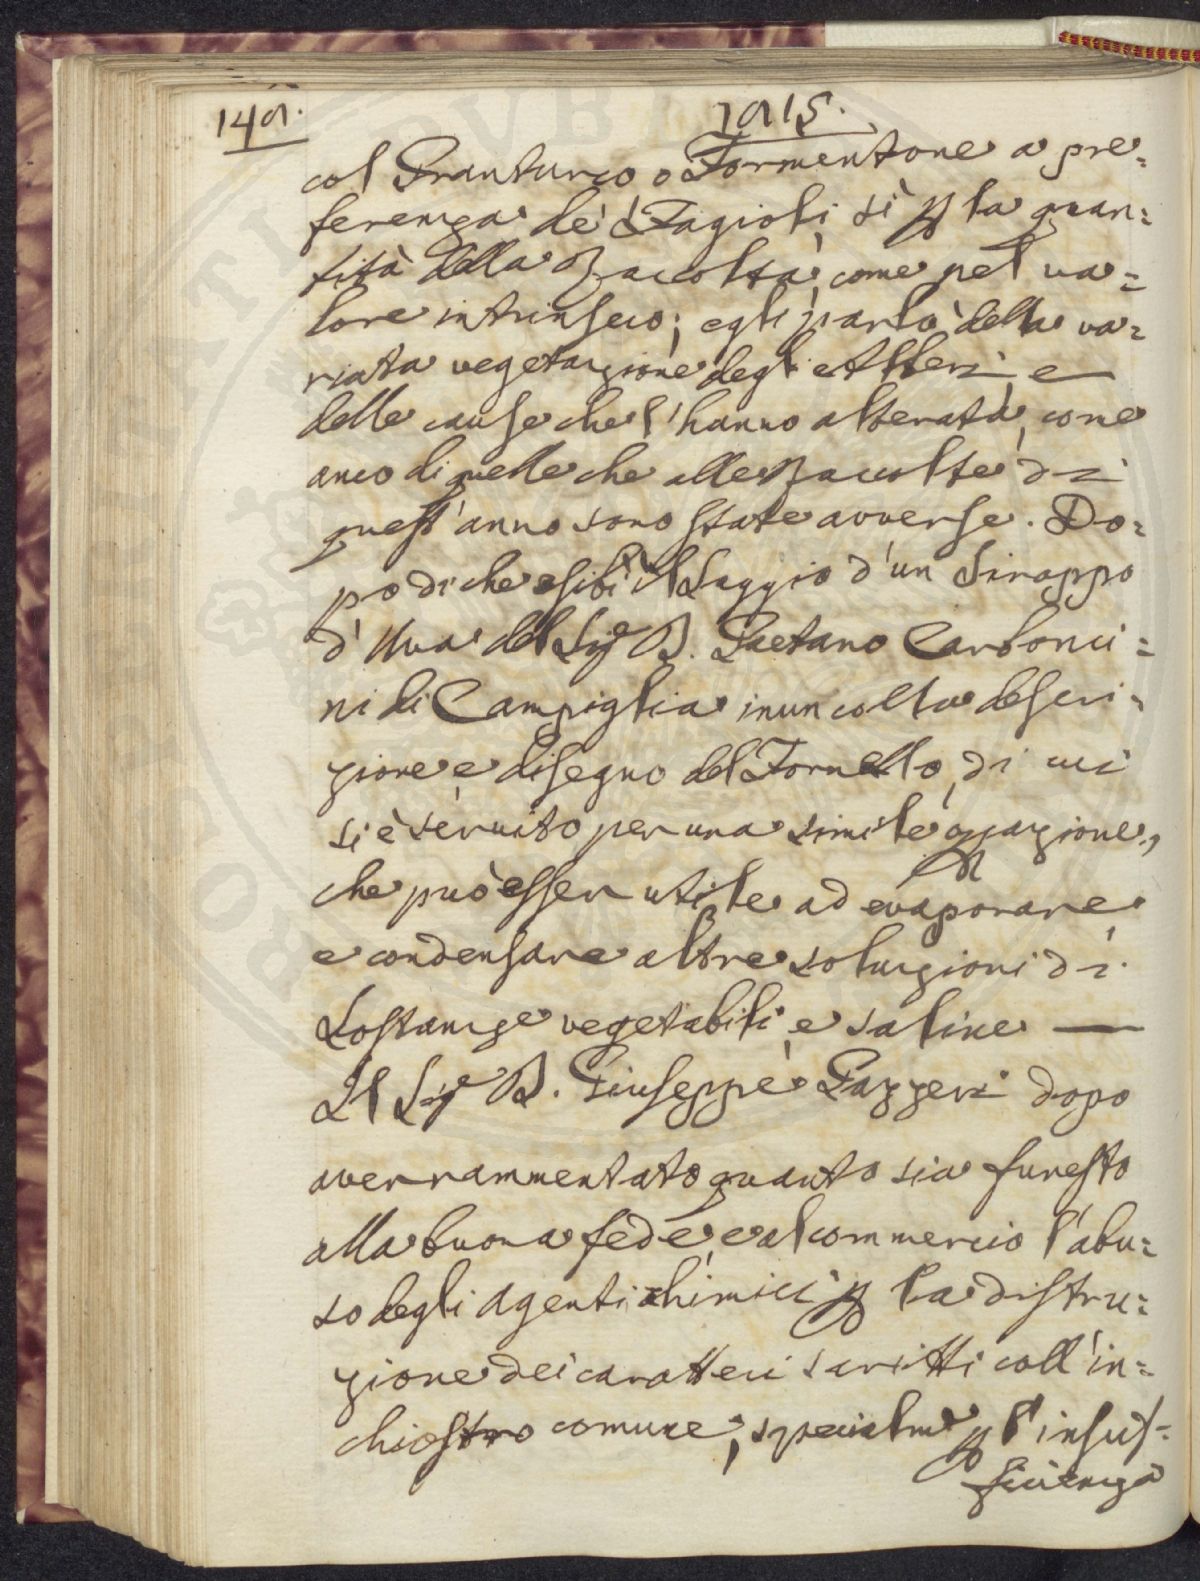 149.
1815.
col Granturco o Formentone a pre=
ferenza de' Fagioli, sì p la quan=
tità della Raccolta, come pel va=
lore intrinseco; egli parlò della va=
riata vegetazione degli Alberi, e
delle cause che l'hanno alterata, come
anco di quelle che alle Raccolte di
quest'anno sono state avverse. Do=
podiche esibì il Saggio d'un Siroppo
d'Uva del Sige D. Gaetano Carbonci=
ni di Campiglia in un colla descri=
zione e disegno del Fornello, di cui
si è servito per una simile
che può esser utile ad evaporare,
e condensare altre soluzioni di
Sostanze vegetabili, e saline —
Il Sige D. Giuseppe Gazzeri dopo
aver rammentato quanto sia funesto
alla buona fede, e al commercio l'abu=
so degli Agenti chimici p la distru=
zione dei caratteri scritti coll'in=
chiostro comune, specialme p l'insuf=
ficienza